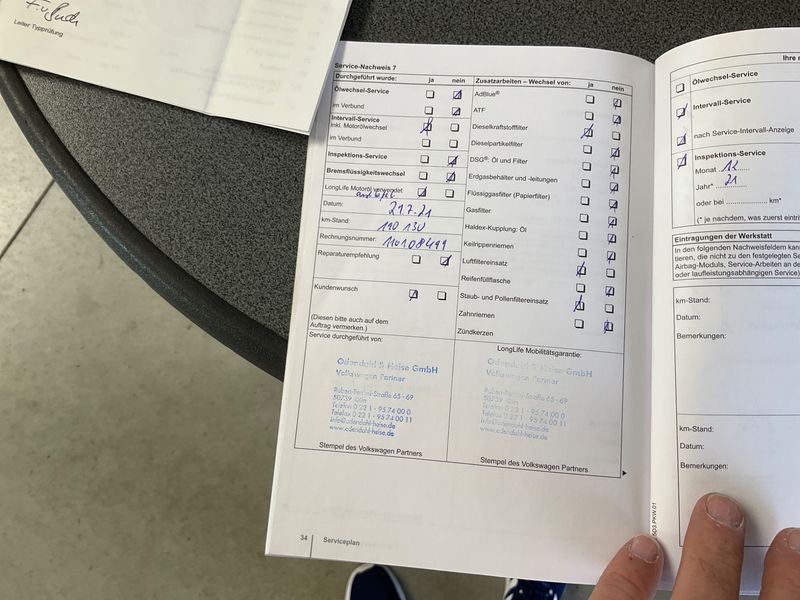 Leiter Typprüfung
Service-Nachweis 7
Durchgeführt wurde: ja nein
Ölwechsel-Service
im Verbund
Intervall-Service
inkl. Motorölwechsel
im Verbund
Inspektions-Service
Bremsflüssigkeitswechsel
LongLife Motoröl verwendet
Datum: 21.7.21
km-Stand: 190 130
Rechnungsnummer: 110108499
Reparaturempfehlung
Kundenwunsch
(Diesen bitte auch auf dem
Auftrag vermerken.)
Service durchgeführt von:
Odendahl & Heise GmbH
Volkswagen Partner
Robert-Perthel-Straße 65 - 69
50739 Köln
Telefon 0 22 1 - 95 74 00 0
Telefax 0 22 1 - 95 74 00 11
info@odendahl-heise.de
www.odendahl-heise.de
Stempel des Volkswagen Partners
Zusatzarbeiten – Wechsel von: ja nein
AdBlue®
ATF
Dieselkraftstofffilter
Dieselpartikelfilter
DSG®: Öl und Filter
Erdgasbehälter und -leitungen
Flüssiggasfilter (Papierfilter)
Gasfilter
Haldex-Kupplung: Öl
Keilrippenriemen
Luftfiltereinsatz
Reifenfüllflasche
Staub- und Pollenfiltereinsatz
Zahnriemen
Zündkerzen
LongLife Mobilitätsgarantie:
Odendahl & Heise GmbH
Volkswagen Partner
Robert-Perthel-Straße 65 - 69
50739 Köln
Telefon 0 22 1 - 95 74 00 0
Telefax 0 22 1 - 95 74 00 11
info@odendahl-heise.de
www.odendahl-heise.de
Stempel des Volkswagen Partners
34 Serviceplan
Ihre
Ölwechsel-Service
Intervall-Service
nach Service-Intervall-Anzeige
Inspektions-Service
Monat 12
Jahr* 21
oder bei .................... km*
(* je nachdem, was zuerst
Eintragungen der Werkstatt
In den folgenden Nachweisfeldern
tieren, die nicht zu den festgelegten
Airbag-Moduls, Service-Arbeiten an
oder laufleistungsabhängigen Service)
km-Stand:
Datum:
Bemerkungen:
km-Stand:
Datum:
Bemerkungen: